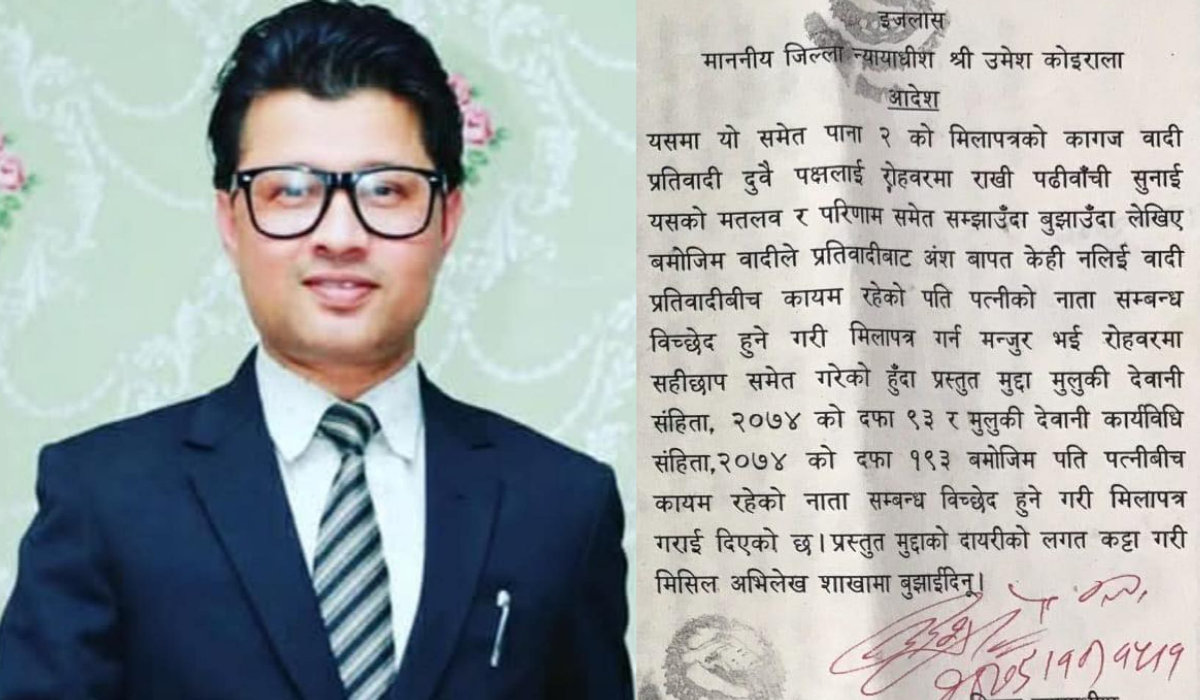 इजलास
माननीय जिल्ला न्यायाधीश श्री उमेश कोइराला
आदेश
यसमा यो समेत पाना २ को मिलापत्रको कागज वादी
प्रतिवादी दुवै पक्षलाई रोहवरमा राखी पढीवाँची सुनाई
यसको मतलव र परिणाम समेत सम्झाउँदा बुझाउँदा लेखिए
बमोजिम वादीले प्रतिवादीबाट अंश बापत केही नलिई वादी
प्रतिवादीबीच कायम रहेको पति पत्नीको नाता सम्बन्ध
विच्छेद हुने गरी मिलापत्र गर्न मन्जुर भई रोहवरमा
सहीछाप समेत गरेको हुँदा प्रस्तुत मुद्दा मुलुकी देवानी
संहिता, २०७४ को दफा ९३ र मुलुकी देवानी कार्यविधि
संहिता,२०७४ को दफा १९३ बमोजिम पति पत्नीबीच
कायम रहेको नाता सम्बन्ध विच्छेद हुने गरी मिलापत्र
गराई दिएको छ। प्रस्तुत मुद्दाको दायरीको लगत कट्टा गरी
मिसिल अभिलेख शाखामा बुझाईदिनू।